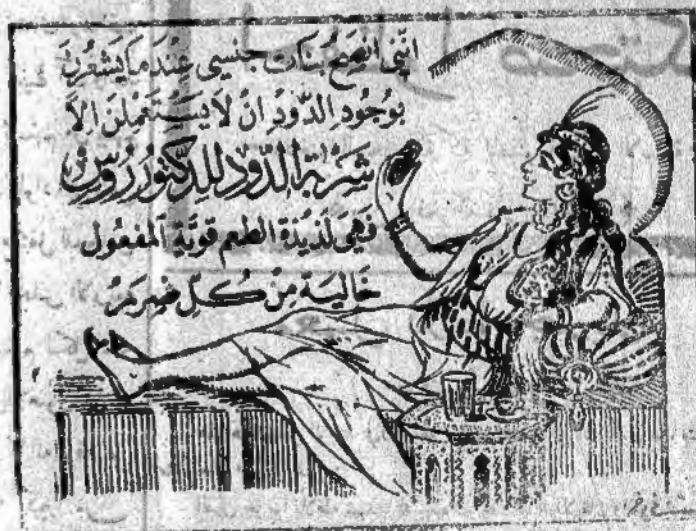 اِنِّى اَنْصَحُ بَنَات جِنْسِى عِنْدَمَا يَشْعُرْنَ
بِوُجُودِ الدُّودِ اَنْ لَا يَسْتَعْمِلْنَ اِلَّا
شَرْبَة الدّود لِلدكتُور رُوسْ
فَهِىَ لَذِيذَة الطَّعِم قَوِيَّة المَفعُول
خَالِيَة مِنْ كُلِّ ضَرَر